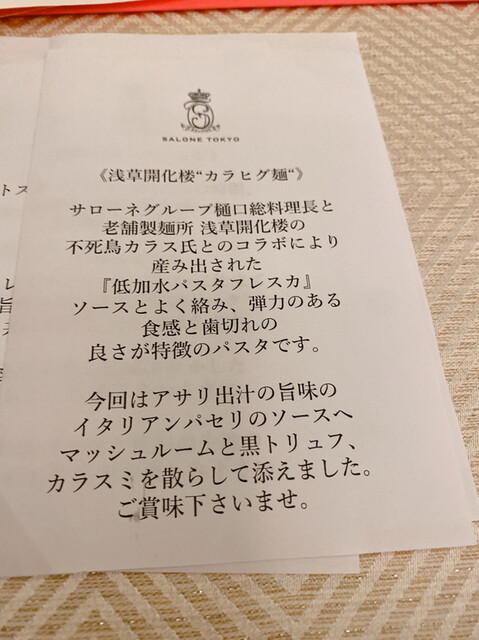 SALONE TOKYO
《浅草開化楼“カラヒグ麺“》
サローネグループ樋口総料理長と
老舗製麺所 浅草開化楼の
不死鳥カラス氏とのコラボにより
産み出された
『低加水パスタフレスカ』
ソースとよく絡み、弾力のある
食感と歯切れの
良さが特徴のパスタです。
今回はアサリ出汁の旨味の
イタリアンパセリのソースへ
マッシュルームと黒トリュフ、
カラスミを散らして添えました。
ご賞味下さいませ。
トス
レ
旨